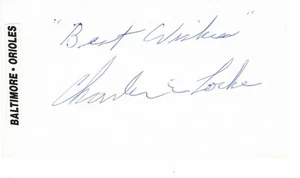 BALTIMORE · ORIOLES
"Best Wishes"
Charlie Locke